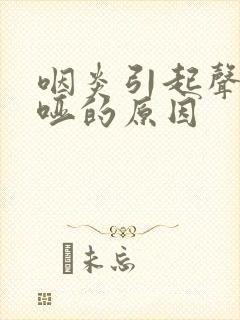 咽炎引起聲
啞的原因
未忘